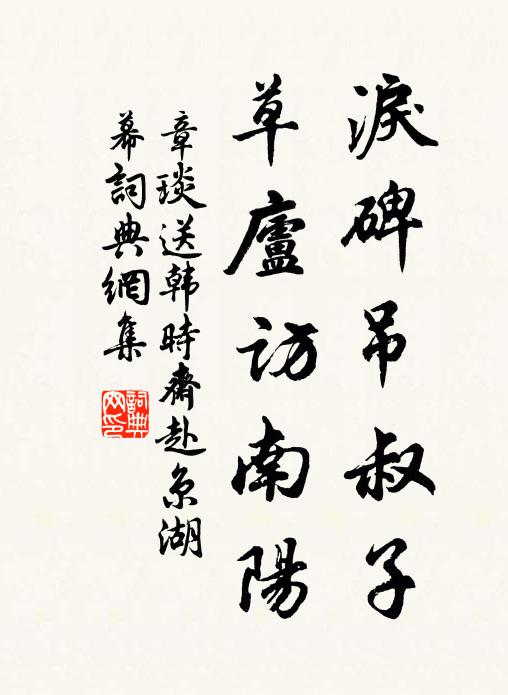 淚碑吊叔子
草廬訪南陽
章琰送韩時齋赴京湖
幕詞典網集
詞典网印